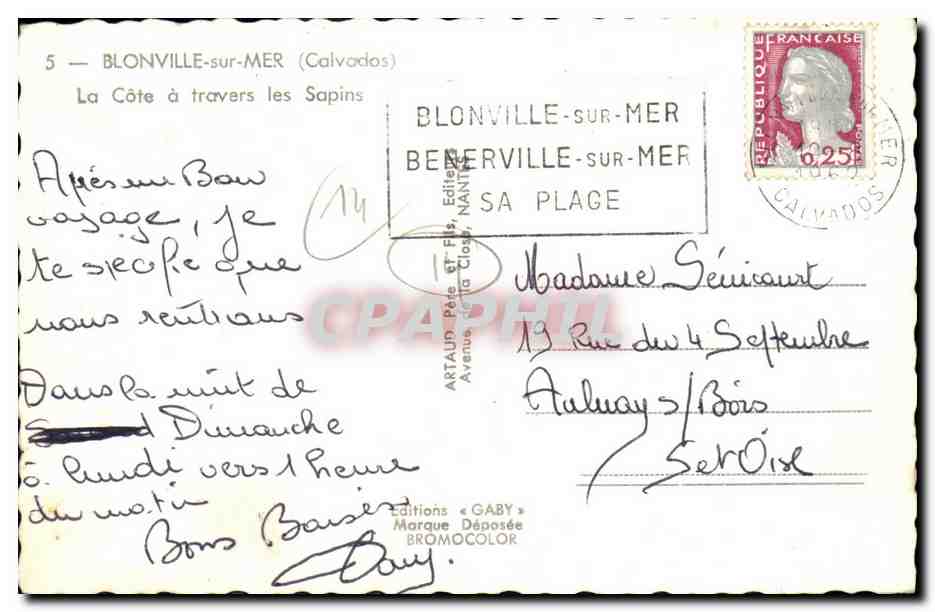 5 — BLONVILLE-sur-MER (Calvados)
La Côte à travers les Sapins
BLONVILLE-SUR-MER
BENERVILLE-SUR-MER
SA PLAGE
REPUBLIQUE FRANÇAISE
POSTES
0,25
CALVADOS
14
Après un Bon
voyage, je
te spécifie que
nous rentrons
Dans la nuit de
Dimanche
à lundi vers 1 heure
du matin
Bons Baisers
Dany.
ARTAUD Père et Fils, Editeurs
Avenue de la Close, NANTES
CPAPHIL
Madame Sénicourt
19 Rue du 4 Septembre
Aulnay s/Bois
S et Oise
Editions « GABY »
Marque Déposée
BROMOCOLOR